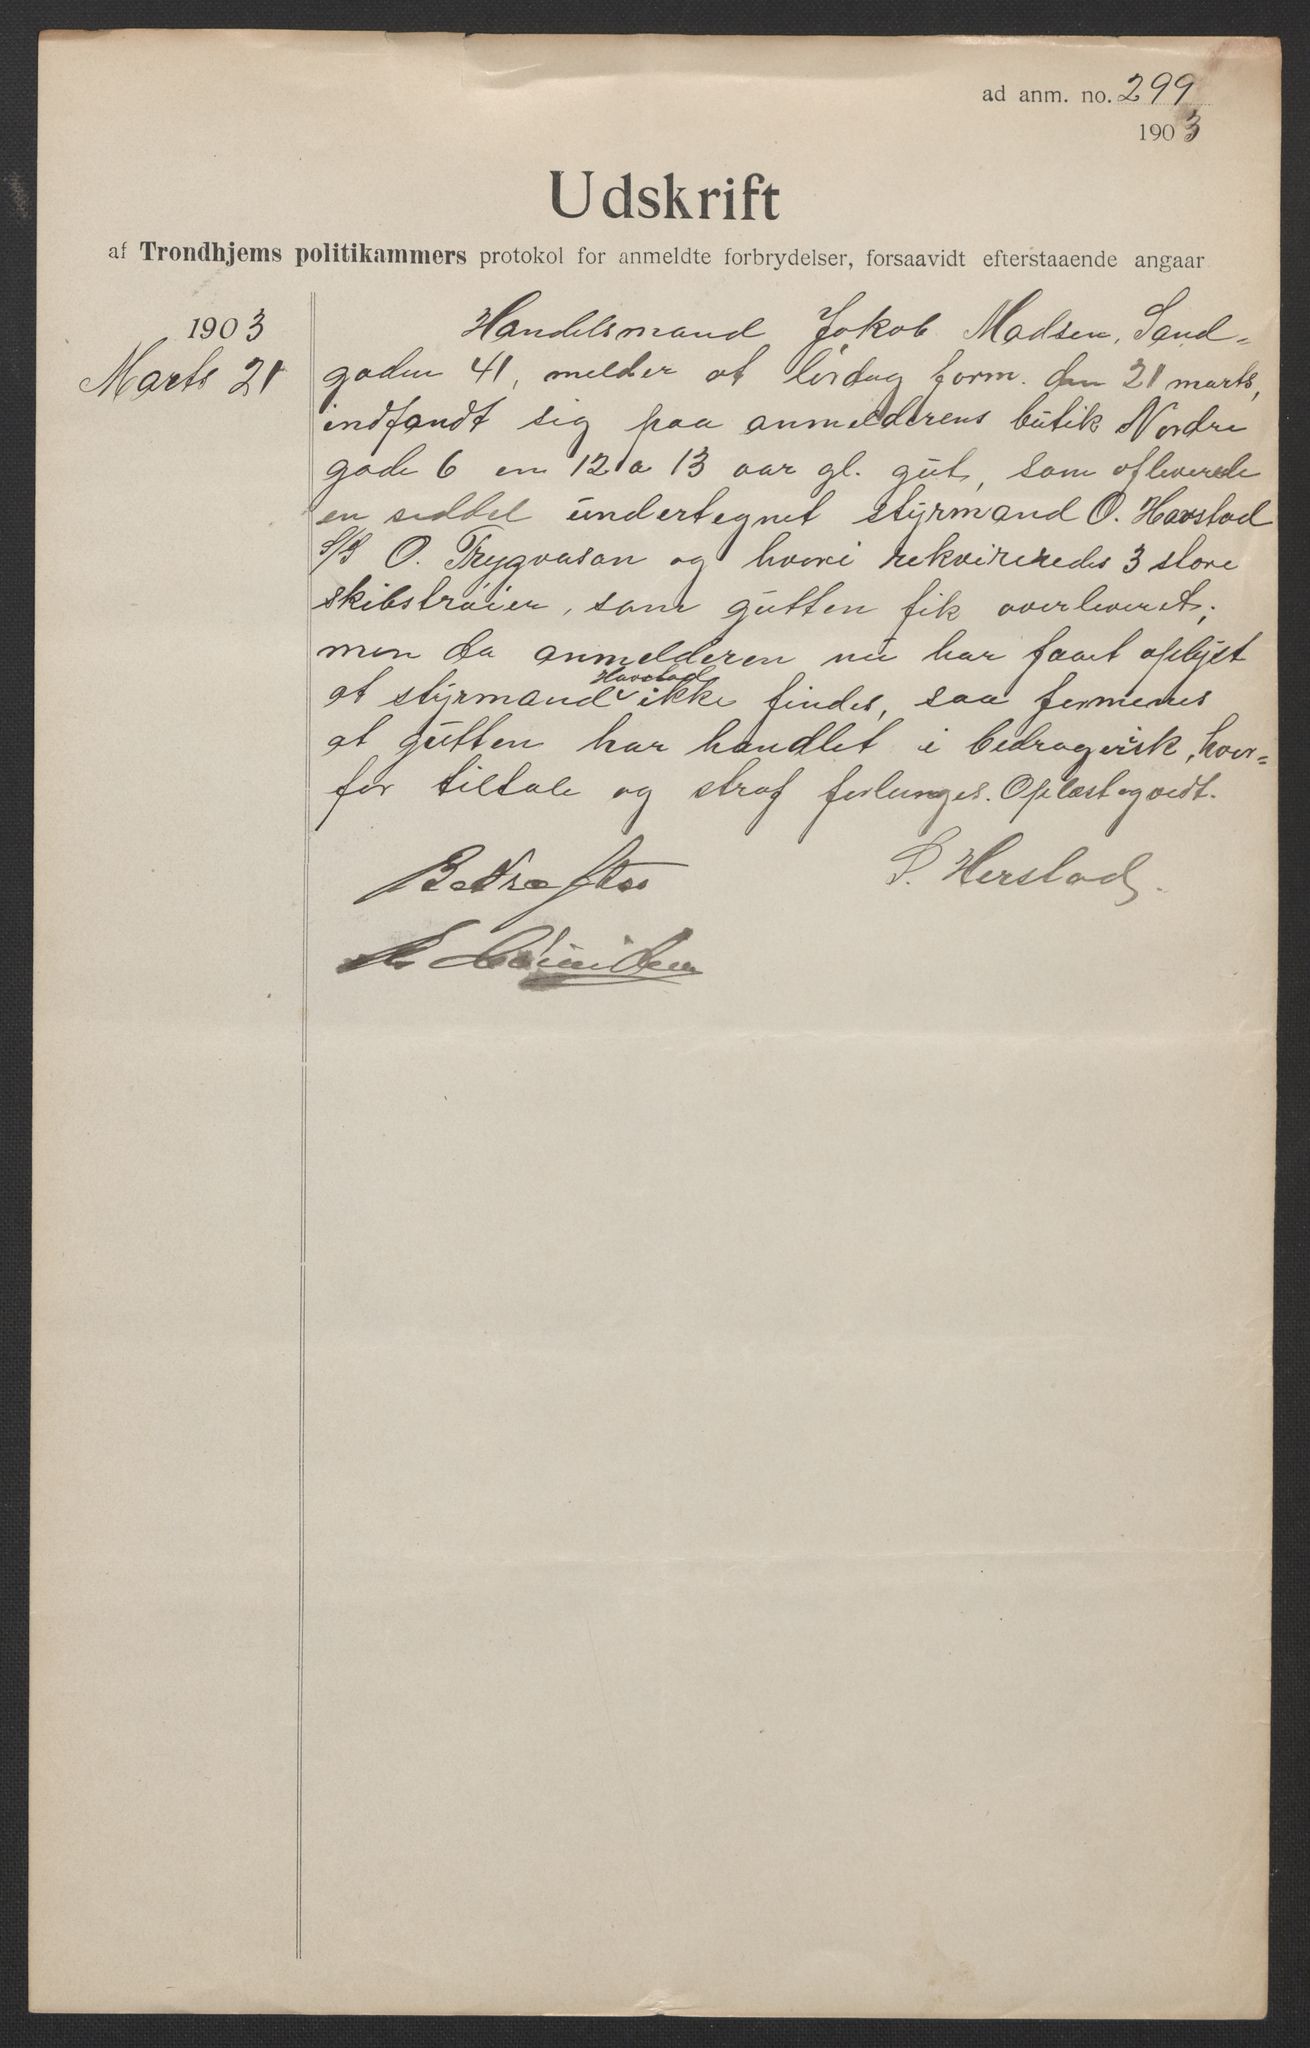 ad anm. no. 299
1903
Udskrift
af Trondhjems politikammers protokol for anmeldte forbrydelser, forsaavidt efterstaaende angaar
1903
Marts 21
Handelsmand Jakob Madsen, Sand-
gaden 41, melder at lørdag form. den 21 marts,
indfandt sig paa anmelderens butik Nordre
gade 6 en 12 a 13 aar gl. gut, som afleverede
en seddel undertegnet styrmand O. Havstad
S/S O. Trygvason og hvori rekvireredes 3 store
skibstrøier, som gutten fik overleveret;
men da anmelderen nu har faaet oplyst
Havstad
at styrmand ikke findes, saa formenes
at gutten har handlet i bedragerisk, hvor-
for tiltale og straf forlanges. Oplæst og vedt.
Bekræftes
S. Herstad.